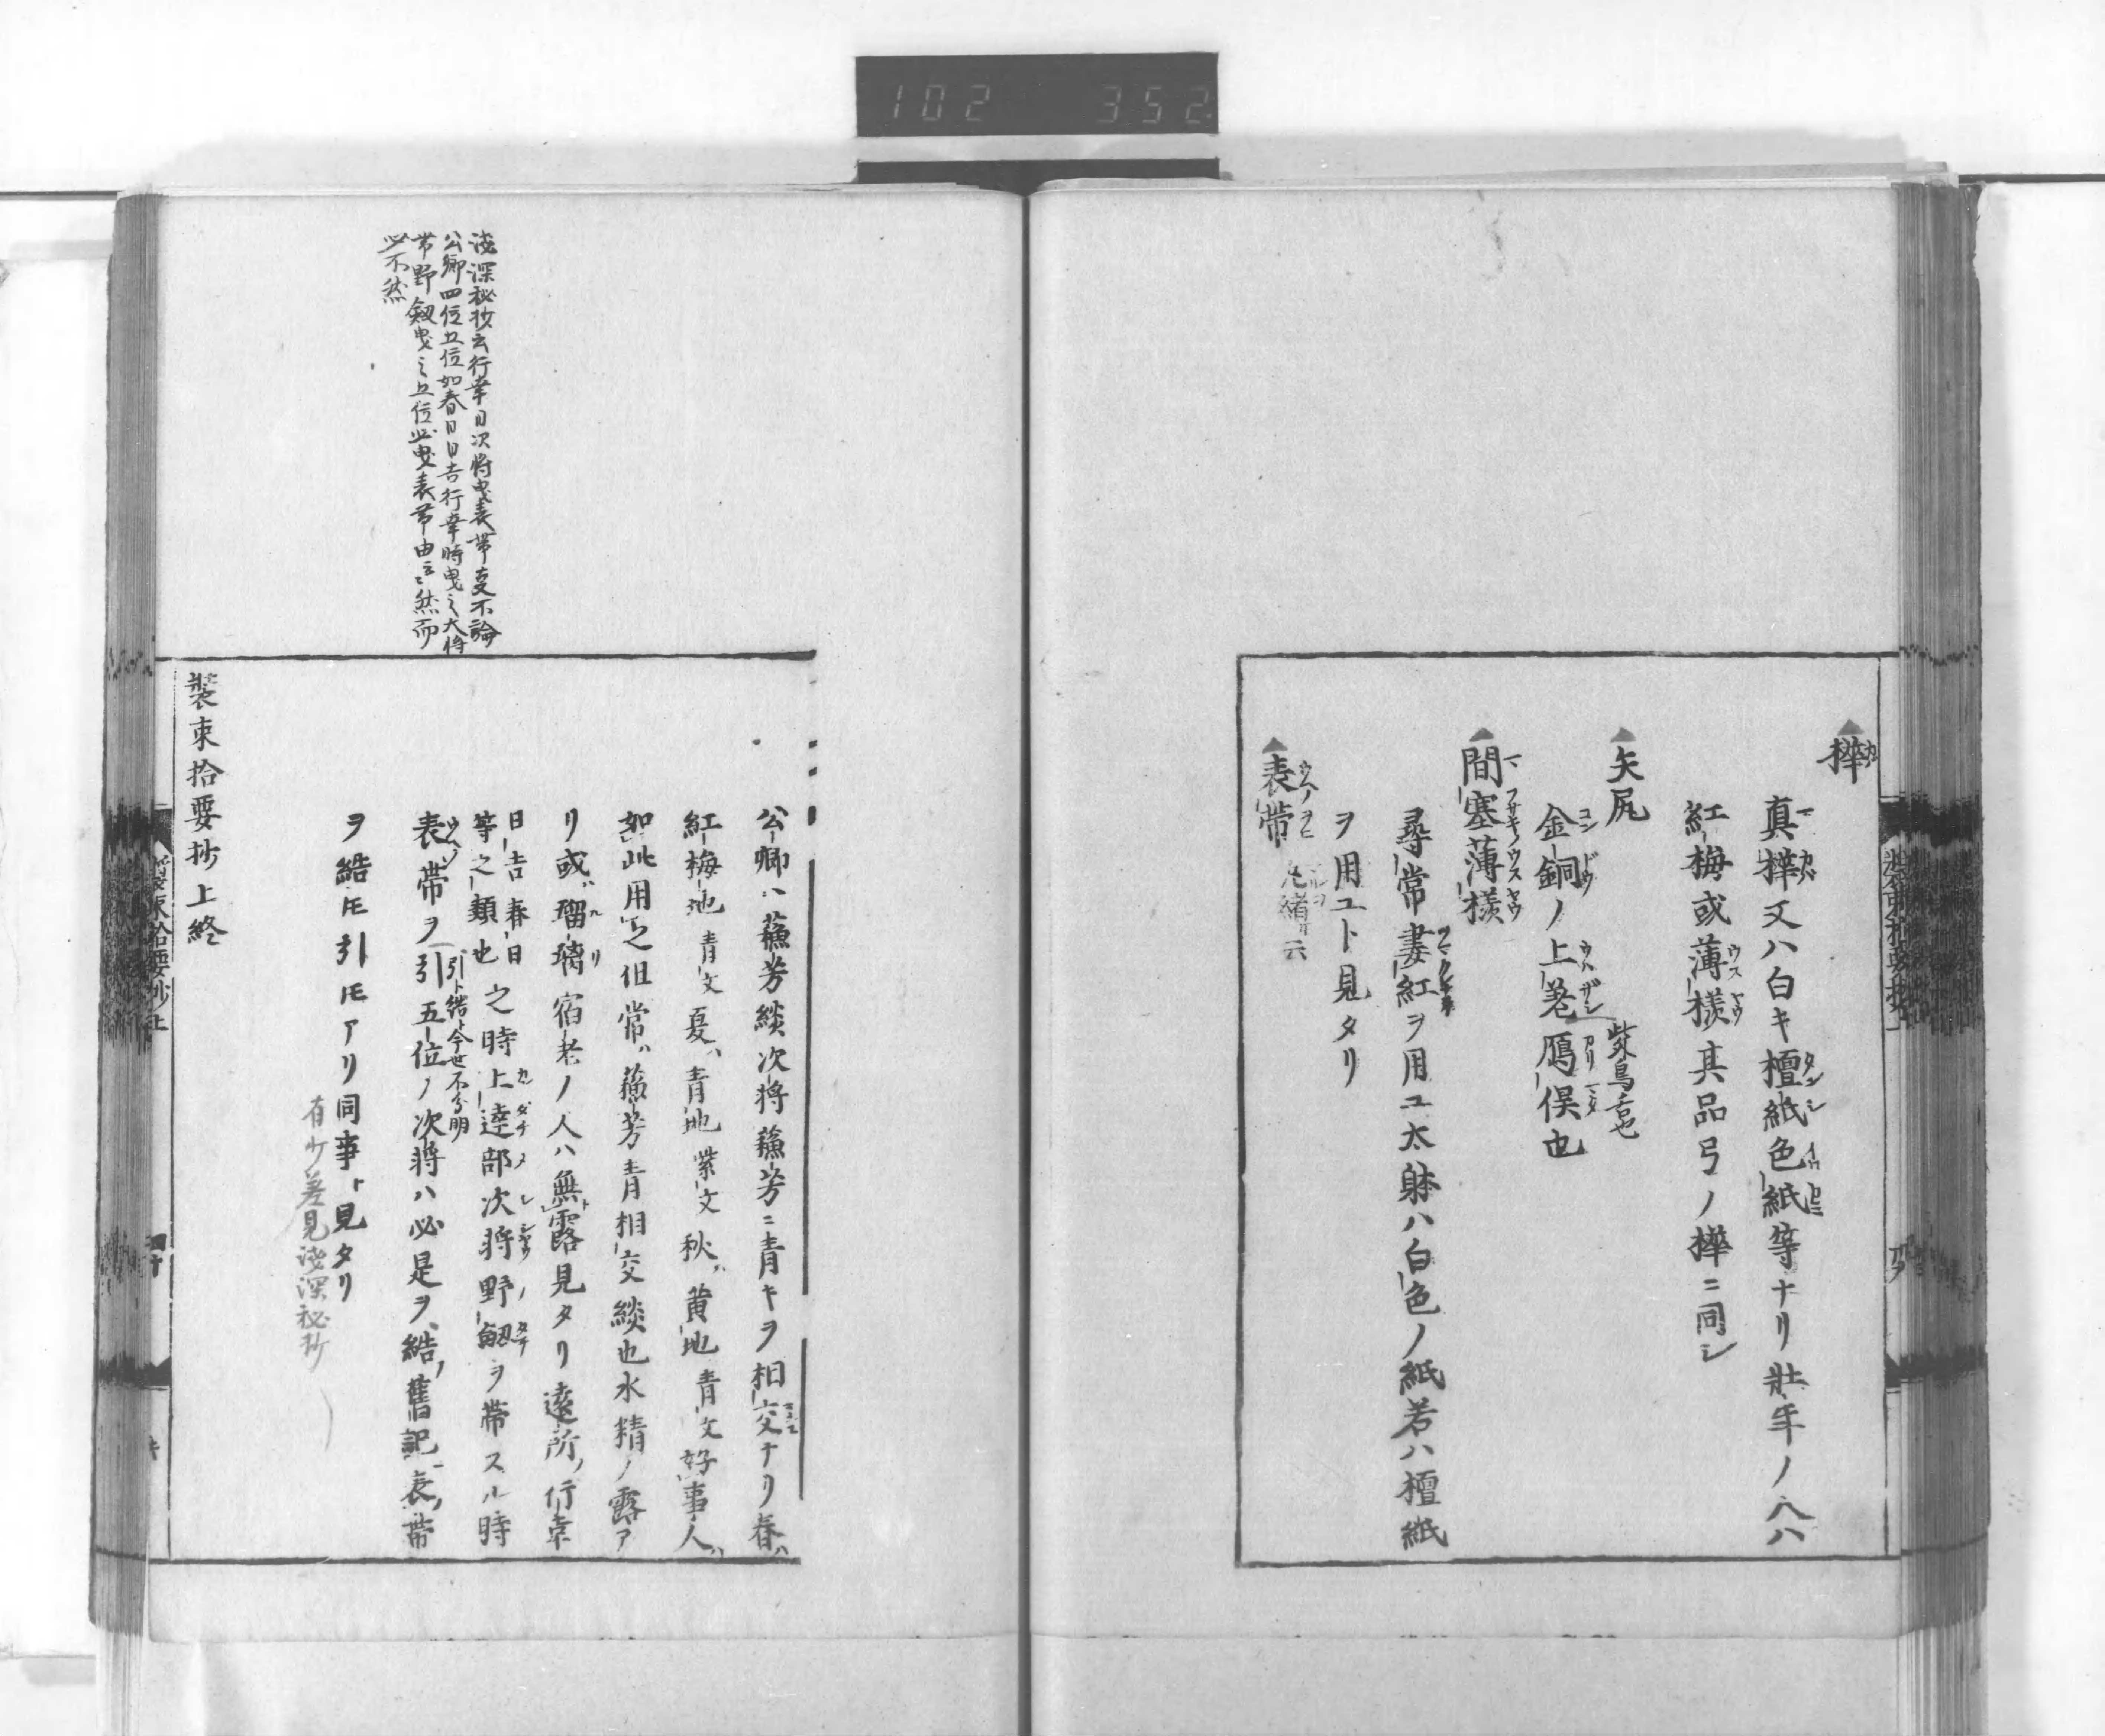 102 352
樺
真樺又ハ白キ檀紙色紙等ナリ壯年ノ人ハ
紅梅或薄樣其品弓ノ樺ニ同シ
矢尻
金銅ノ上差鴈俣也
間塞薄樣
尋常妻紅ヲ用ユ太躰ハ白色ノ紙若ハ檀紙
ヲ用ユト見タリ
表帶
公卿ハ蘓芳緂次將蘓芳ニ青キヲ相交ナリ春ハ
紅梅地青文夏ハ青地紫文秋ハ黄地青文好事人ハ
如此用之但常ハ蘓芳青相交緂也水精ノ露ア
リ或ハ瑠璃宿老ノ人ハ無露見タリ遠所ノ行幸
日吉春日
等之類也
之時上達部次將野劔ヲ帶スル時
表帶ヲ引
引ト結ト今世不分明
五位ノ次將ハ必是ヲ結フ舊記ニ表ノ帶
ヲ結圧引圧アリ同事ト見タリ
有少差見淺深秘抄
裝束拾要抄上終
淺深秘抄云行幸日次將曳表帶事不論
公卿四位五位如春日日吉行幸時曳之大將
帯野劔曳之五位必曳表帯由云々然而
必不然
裝束拾要抄上
四十